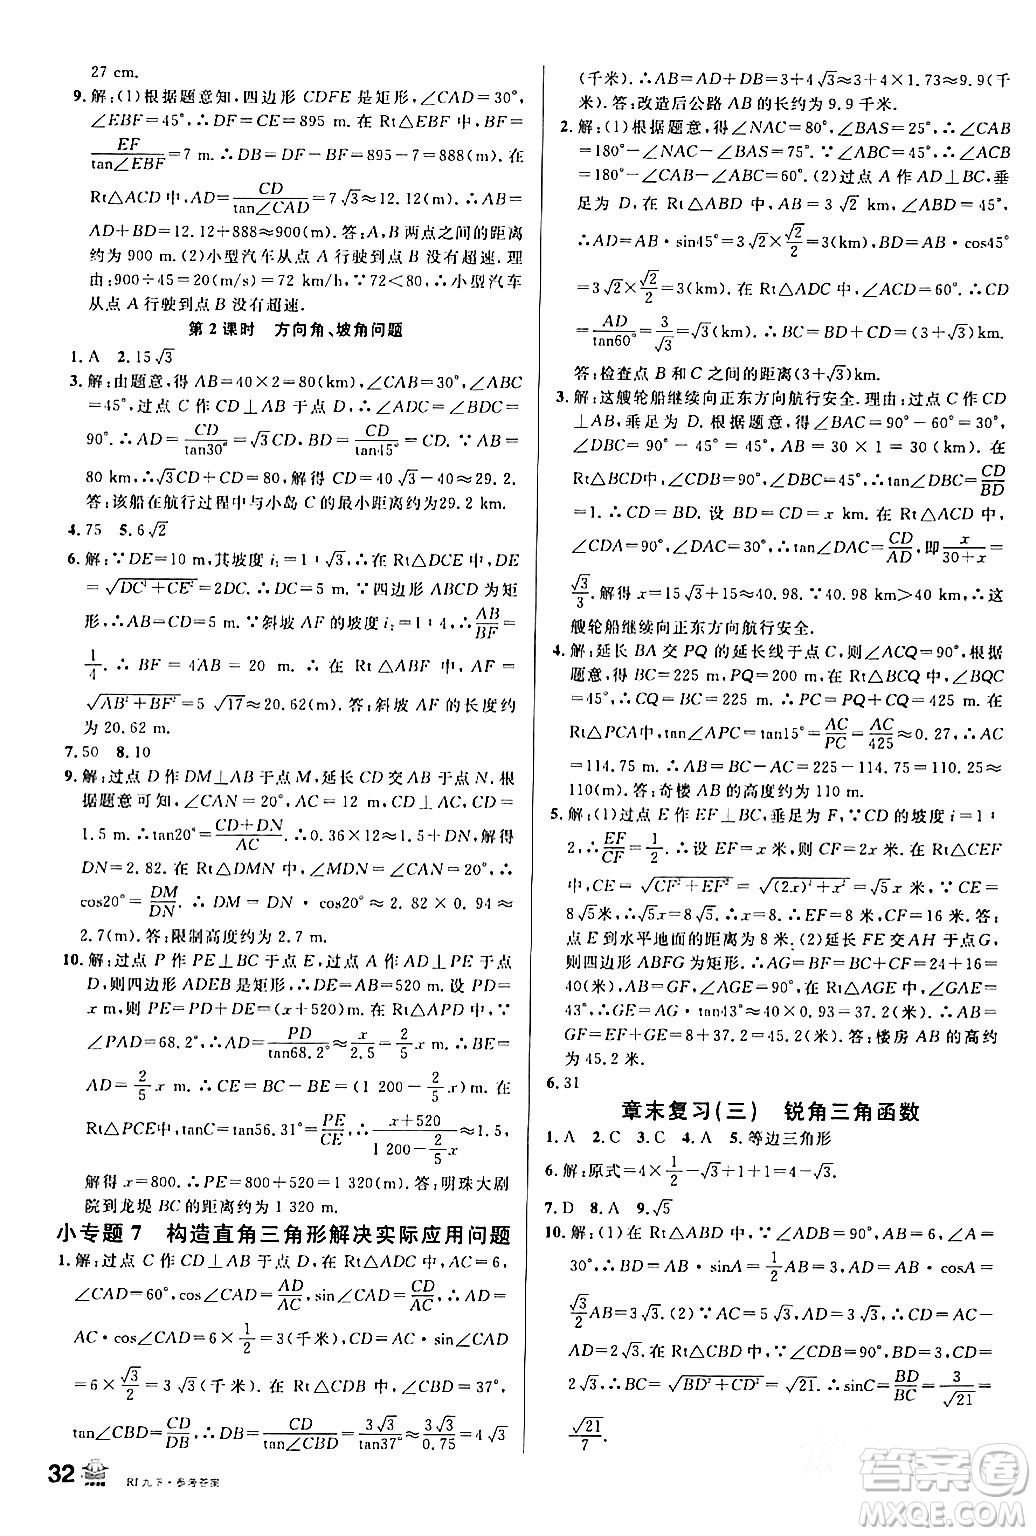 27 cm.
9.解:(1)根据题意知,四边形 CDFE 是矩形,∠CAD=30°,
∠EBF=45°,∴DF=CE=895 m.在 Rt△BEF 中,BF=
EF/tan∠EBF=7 m.∴DB=DF-BF=895-7=888(m).在
Rt△ACD 中,AD=CD/tan∠CAD=7√3≈12.12(m).∴AB=
AD+DB=12.12+888≈900(m).答:A,B 两点之间的距离
约为 900 m.(2)小型汽车从点 A 行驶到点 B 没有超速.理
由:900÷45=20(m/s)=72 km/h,∵72<80,∴小型汽车
从点 A 行驶到点 B 没有超速.
第 2 课时 方向角、坡角问题
1.A 2.15√3
3.解:由题意,得 AB=40×2=80(km),∠CAB=30°,∠ABC
=45°,过点 C 作 CD⊥AB 于点 D,∴∠ADC=∠BDC=
90°.∴AD=CD/tan30°=√3CD,BD=CD/tan45°=CD.∵AB=
80 km,∴√3CD+CD=80,解得 CD=40√3-40≈29.2.
答:该船在航行过程中与小岛 C 的最小距离约为29.2 km.
4.75 5.6√2
6.解:∵DE=10 m,其坡度 i₁=1∶√3,∴在 Rt△DCE 中,DE
=√(DC²+CE²)=2DC=10.∴DC=5 m.∵四边形 ABCD 为矩
形,∴AB=CD=5 m.∵斜坡 AF 的坡度 i₂=1∶4,∴AB/BF=
1/4.∴BF=4AB=20 m.∴在 Rt△ABF 中,AF=
√(AB²+BF²)=5√17≈20.62(m).答:斜坡 AF 的长度约
为 20.62 m.
7.50 8.10
9.解:过点 D 作 DM⊥AB 于点 M,延长 CD 交 AB 于点 N.根
据题意可知,∠CAN=20°,AC=12 m,∠ACN=90°,CD=
1.5 m.∴tan20°=(CD+DN)/AC.∴0.36×12≈1.5+DN,解得
DN=2.82.在 Rt△DMN 中,∠MDN=∠CAN=20°,∴
cos20°=DM/DN.∴DM=DN·cos20°≈2.82×0.94≈
2.7(m).答:限制高度约为 2.7 m.
10.解:过点 P 作 PE⊥BC 于点 E,过点 A 作 AD⊥PE 于点
D,则四边形 ADEB 是矩形.∴DE=AB=520 m.设 PD=
x m,则 PE=PD+DE=(x+520)m.在 Rt△APD 中,∵
∠PAD=68.2°,∴AD=PD/tan68.2°≈x/2.5=2/5x m.∴BE=
AD=2/5x m.∴CE=BC-BE=(1 200-2/5x)m.在
Rt△PCE 中,tanC=tan56.31°=PE/CE=(x+520)/(1 200-2/5x)≈1.5,
解得 x=800.∴PE=800+520=1 320(m).答:明珠大剧
院到龙堤 BC 的距离约为 1 320 m.
小专题 7 构造直角三角形解决实际应用问题
1.解:过点 C 作 CD⊥AB 于点 D,在 Rt△ADC 中,AC=6,
∠CAD=60°,cos∠CAD=AD/AC,sin∠CAD=CD/AC,∴AD=
AC·cos∠CAD=6×1/2=3(千米),CD=AC·sin∠CAD
=6×√3/2=3√3(千米).在 Rt△CDB 中,∠CBD=37°,
tan∠CBD=CD/DB,∴DB=CD/tan∠CBD=3√3/tan37°≈3√3/0.75=4√3
(千米).∴AB=AD+DB=3+4√3≈3+4×1.73≈9.9(千
米).答:改造后公路 AB 的长约为 9.9 千米.
2.解:(1)根据题意,得∠NAC=80°,∠BAS=25°,∴∠CAB
=180°-∠NAC-∠BAS=75°.∵∠ABC=45°,∴∠ACB
=180°-∠CAB-∠ABC=60°.(2)过点 A 作 AD⊥BC,垂
足为 D.在 Rt△ABD 中,∵AB=3√2 km,∠ABC=45°,
∴AD=AB·sin45°=3√2×√2/2=3(km),BD=AB·cos45°
=3√2×√2/2=3(km).在 Rt△ADC 中,∵∠ACB=60°,∴CD
=AD/tan60°=3/√3=√3(km).∴BC=BD+CD=(3+√3)km.
答:检查点 B 和 C 之间的距离(3+√3)km.
3.解:这艘轮船继续向正东方向航行安全.理由:过点 C 作 CD
⊥AB,垂足为 D.根据题意,得∠CAD=90°-60°=30°,
∠DBC=90°-45°=45°,AB=30×1=30(km).在
Rt△BDC 中,∵∠CDB=90°,∠DBC=45°,∴tan∠DBC=CD/BD
=1.∴CD=BD.设 BD=CD=x km,在 Rt△ADC 中,
∠CDA=90°,∠CAD=30°,∵tan∠CAD=CD/AD,即x/(30+x)=
√3/3.解得 x=15√3+15≈40.98.∵40.98 km>40 km,∴这
艘轮船继续向正东方向航行安全.
4.解:延长 BA 交 PQ 的延长线于点 C,则∠ACQ=90°.根据
题意,得 BC=225 m,PQ=200 m,在 Rt△BCQ 中,∠BQC
=45°,∴CQ=BC=225 m,∴PC=PQ+CQ=425 m.在
Rt△PCA 中,tan∠APC=tan15°=AC/PC=AC/425≈0.27,∴AC
=114.75 m.∴AB=BC-AC=225-114.75=110.25≈
110(m).答:奇楼 AB 的高度约为 110 m.
5.解:(1)过点 E 作 EF⊥BC,垂足为 F,∵CD 的坡度 i=1∶
2,∴EF/CF=1/2.∴设 EF=x 米,则 CF=2x 米.在 Rt△CEF
中,CE=√(CF²+EF²)=√((2x)²+x²)=√5x 米,∵CE=
8√5米,∴√5x=8√5,∴x=8.∴EF=8 米,CF=16 米.答:
点 E 到水平地面的距离为 8 米.(2)延长 FE 交 AH 于点G,
则四边形 ABFG 为矩形.∴AG=BF=BC+CF=24+16=
40(米),GF=AB,∠AGE=90°.在 Rt△AGE 中,∠GAE=
43°,∴GE=AG·tan43°≈40×0.93=37.2(米).∴AB=
GF=EF+GE=8+37.2=45.2(米).答:楼房 AB 的高约
为 45.2 米.
6.31
章末复习(三) 锐角三角函数
1.A 2.C 3.C 4.A 5.等边三角形
6.解:原式=4×1/2-√3+1+1=4-√3.
7.D 8.A 9.√5
10.解:(1)在 Rt△ABD 中,∵∠ADB=90°,∠A=
30°,∴BD=AB·sinA=1/2AB,AD=AB·cosA=
√3/2AB=3.(2)∵AB=2√3,AD=3,AC=5√3,∴
AD=2√3.在 Rt△CBD 中,∵∠CDB=90°,BD=3,CD=
2√3,∴BC=√(BD²+CD²)=√21.∴sinC=BD/BC=3/√21=
√21/7.
32 RJ九下·参考答案
答案圈
MXQE.COM